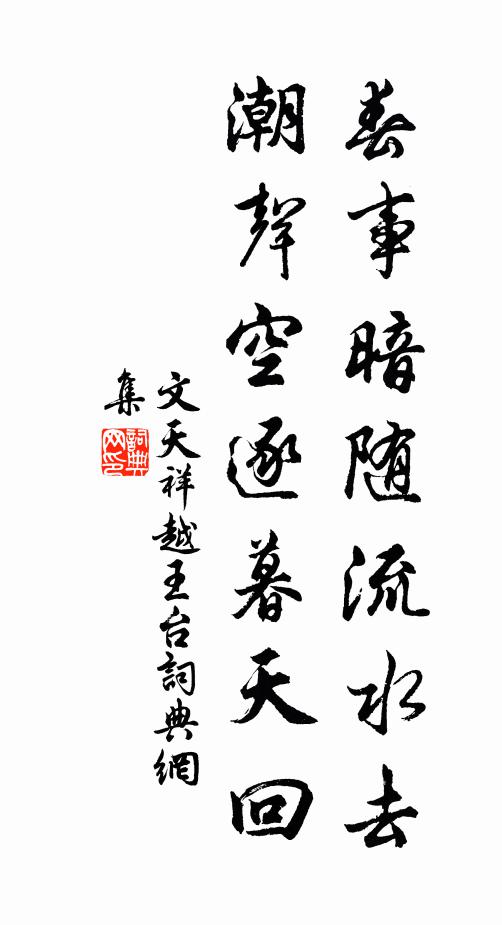 春事暗随流水去
潮聲空逐暮天回
文天祥越王台詞典網
集
詞典
网印